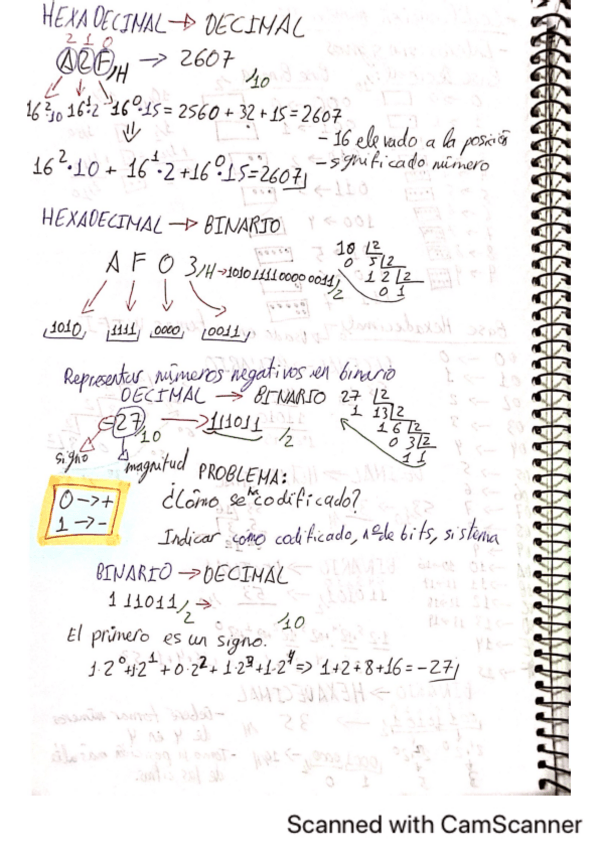 HEXADECIMAL → DECIMAL
2 1 0
A2F/H → 2607/10
16²·10 16¹·2 16⁰·15 = 2560 + 32 + 15 = 2607
- 16 elevado a la posición
16²·10 + 16¹·2 + 16⁰·15 = 2607
- significado número
HEXADECIMAL → BINARIO
A F 0 3/H → 1010111100000011/2
10 |2
0 5 |2
1 2 |2
0 1
1010, 1111, 0000, 0011,
Representar números negativos en binario
DECIMAL → BINARIO
27 |2
1 13 |2
1 6 |2
0 3 |2
1 1
-27/10 → 111011/2
signo
magnitud
0 → +
1 → -
PROBLEMA:
¿Cómo se codificado?
Indicar como codificado, nº de bits, sistema
BINARIO → DECIMAL
111011/2 →
/10
El primero es un signo.
1·2⁰+1·2¹+0·2²+1·2³+1·2⁴ ⇒ 1+2+8+16 = -27
Scanned with CamScanner